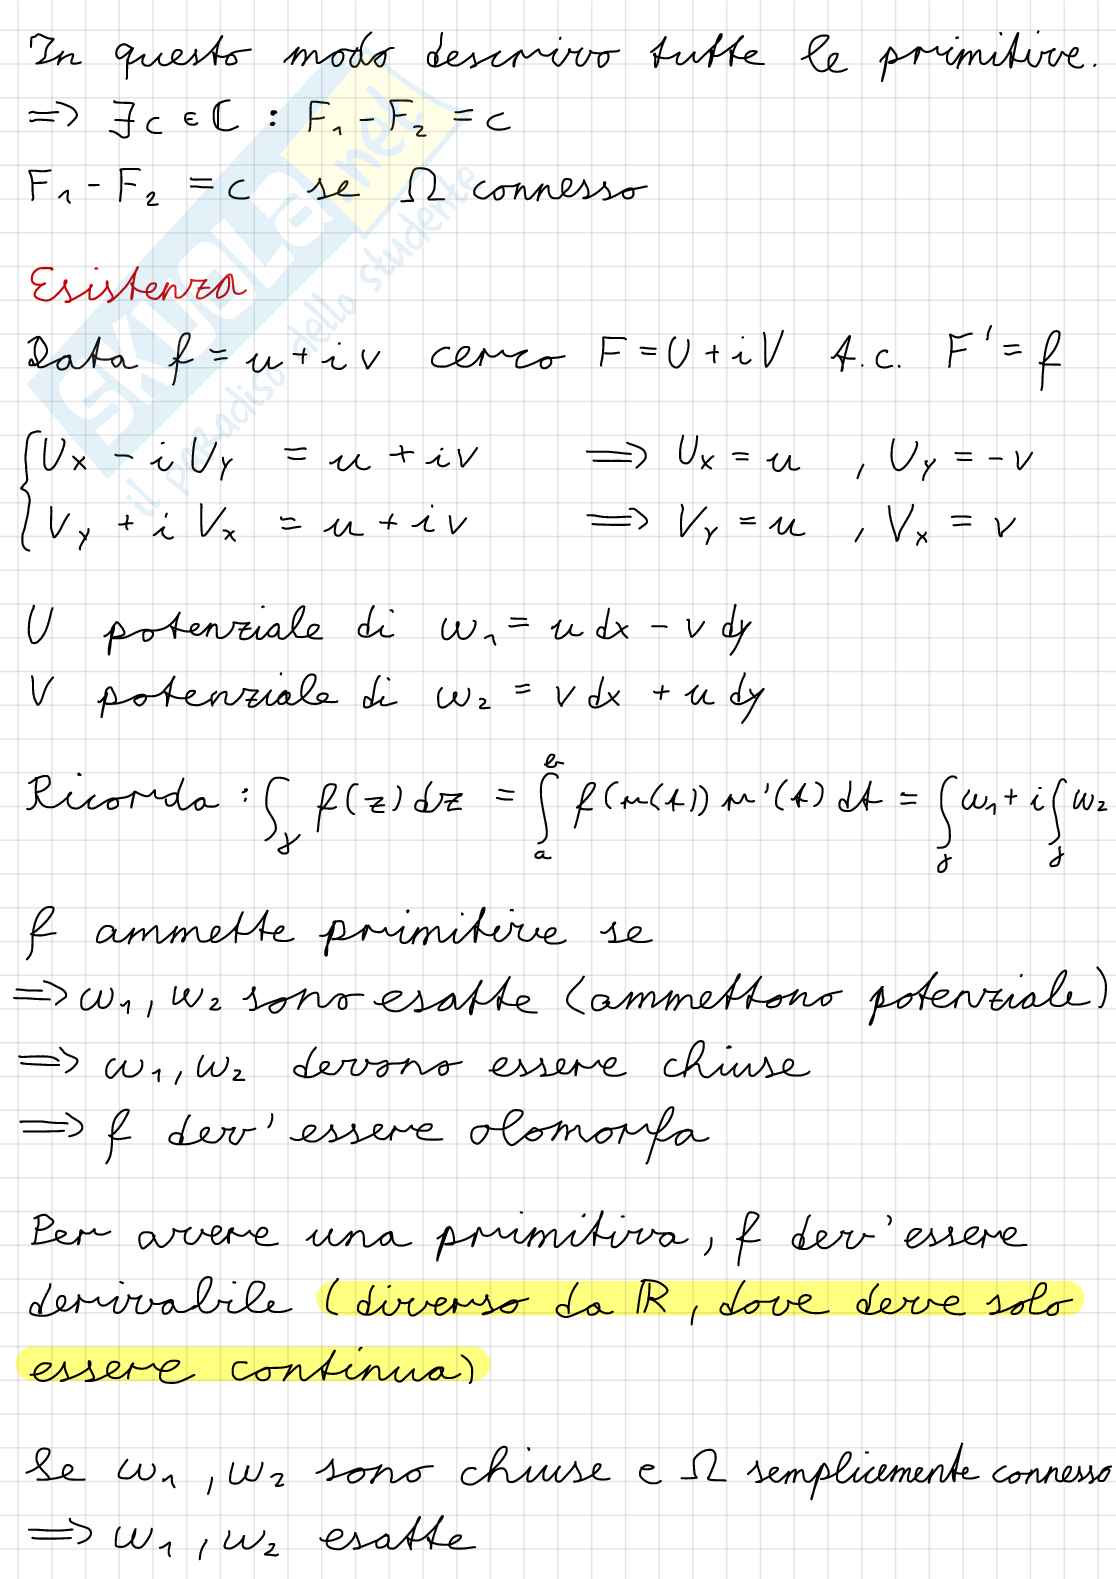 In questo modo descrivo tutte le primitive.
⟹ ∃c ∈ ℂ : F₁ - F₂ = c
F₁ - F₂ = c se Ω connesso
Esistenza
Data f = u + iv cerco F = U + iV t.c. F' = f
{ Uₓ - i U_y = u + iv ⟹ Uₓ = u , U_y = -v
V_y + i Vₓ = u + iv ⟹ V_y = u , Vₓ = v
U potenziale di ω₁ = u dx - v dy
V potenziale di ω₂ = v dx + u dy
Ricorda : ∫_γ f(z) dz = ∫_a^b f(r(t)) r'(t) dt = ∫_γ ω₁ + i ∫_γ ω₂
f ammette primitive se
⟹ ω₁, ω₂ sono esatte (ammettono potenziale)
⟹ ω₁, ω₂ devono essere chiuse
⟹ f dev' essere olomorfa
Per avere una primitiva, f dev' essere
derivabile (diverso da ℝ, dove deve solo
essere continua)
Se ω₁, ω₂ sono chiuse e Ω semplicemente connesso
⟹ ω₁, ω₂ esatte
SKUOLA.net
il paradiso dello studente